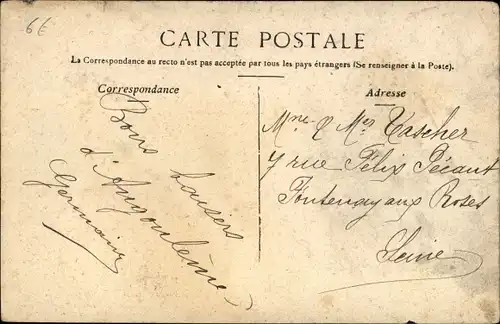 6€
CARTE POSTALE
La Correspondance au recto n'est pas acceptée par tous les pays étrangers (Se renseigner à la Poste).
Correspondance
Bons baisers
d'Angoulême
Germaine
Adresse
Mme & Mer Tascher
7 rue Félix Pécaut
Fontenay aux Roses
Seine